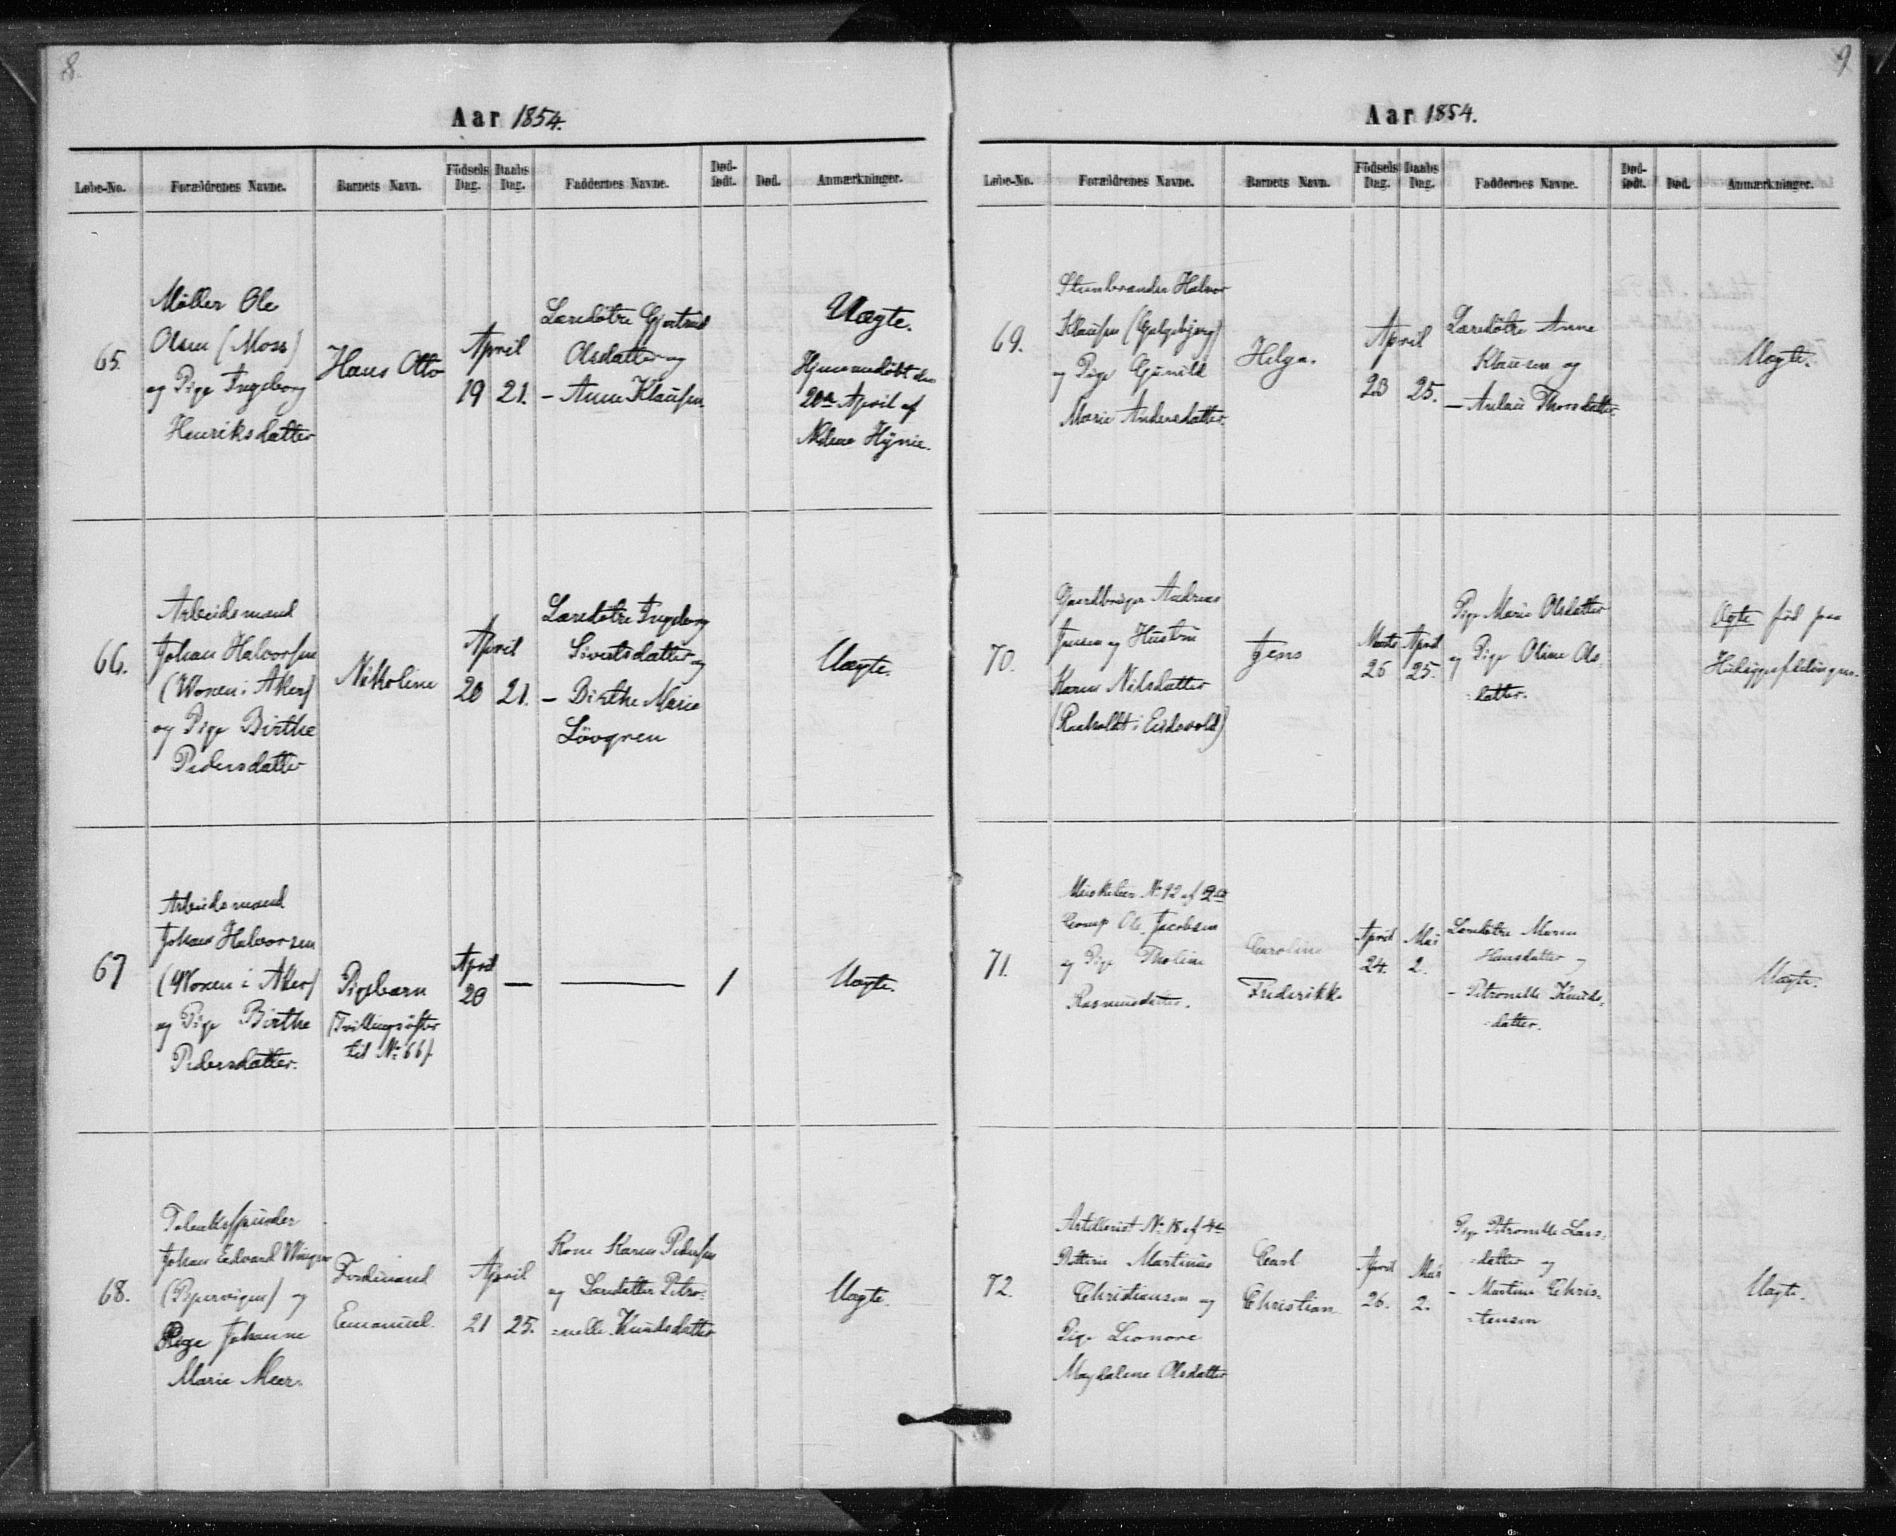 8.
Aar 1854.
Løbe-No. Forældrenes Navne. Barnets Navn. Födsels Dag. Daabs Dag. Faddernes Navne. Dødfödt. Død. Anmærkninger.
65.
Møller Ole
Olsen (Moss)
og Pige Ingeborg
Henriksdatter
Hans Otto
April
19 21.
Læredøtre Gjertrud
Olsdatter og
- Anne Klausen.
Uægte.
Hjemmedøbt den
20de April af
Hynie.
66.
Arbeidsmand
Johan Halvorsen
(Woxen i Aker)
og Pige Birthe
Pedersdatter
Nikoline
April
20 21.
Læredøtre Ingeborg
Sivertsdatter og
- Birthe Marie
Lövgren
Uægte.
67
Arbeidsmand
Johan Halvorsen
(Woxen i Aker)
og Pige Birthe
Pedersdatter.
Pigebarn
(Tvillingsøster
til No. 66).
April
20
—
—
1
Uægte.
68.
Tobaksspinder
Johan Edvard
(Pipervigen) og
Pige Johanne
Marie Meer.
Ferdinand
Emanuel.
April
21 25.
Kone Karen Pedersen
og Læredatter Petro-
=nelle Knudsdatter
Uægte.
9
Aar 1854.
Løbe-No. Forældrenes Navne. Barnets Navn. Födsels Dag. Daabs Dag. Faddernes Navne. Dødfödt. Død. Anmærkninger.
69.
Halvor
Klausen (Galgebjerg)
og Pige Gunild
Marie Andersdatter.
Helga.
April
23 25.
Læredøtre Anne
Klausen og
- Thorsdatter.
Uægte.
70.
Gaardbruger Andreas
Jensen og Hustru
Karen Nilsdatter
(Raaholdt i Eidsvold)
Jens
Marts 26
April 25.
Pige Marie Olsdatter
og Pige Oline Ols-
=datter.
Ægte født paa
71.
Musketeer No. 92 af 2det
Comp Ole Jacobsen
og Pige Tholine
Rasmusdatter.
Caroline
Frederikke
April 24.
Mai 2.
Læredøtre Maren
Hansdatter og
- Petronelle Knuds-
=datter.
Uægte.
72.
Artillerist No. 18 af 4de
Batterie Martinus
Christiansen og
Pige Leonore
Magdalene Olsdatter
Carl
Christian
April 26.
Mai 2.
Pige Petronelle Lars-
=datter og
- Martine Chris-
=tensen
Uægte.